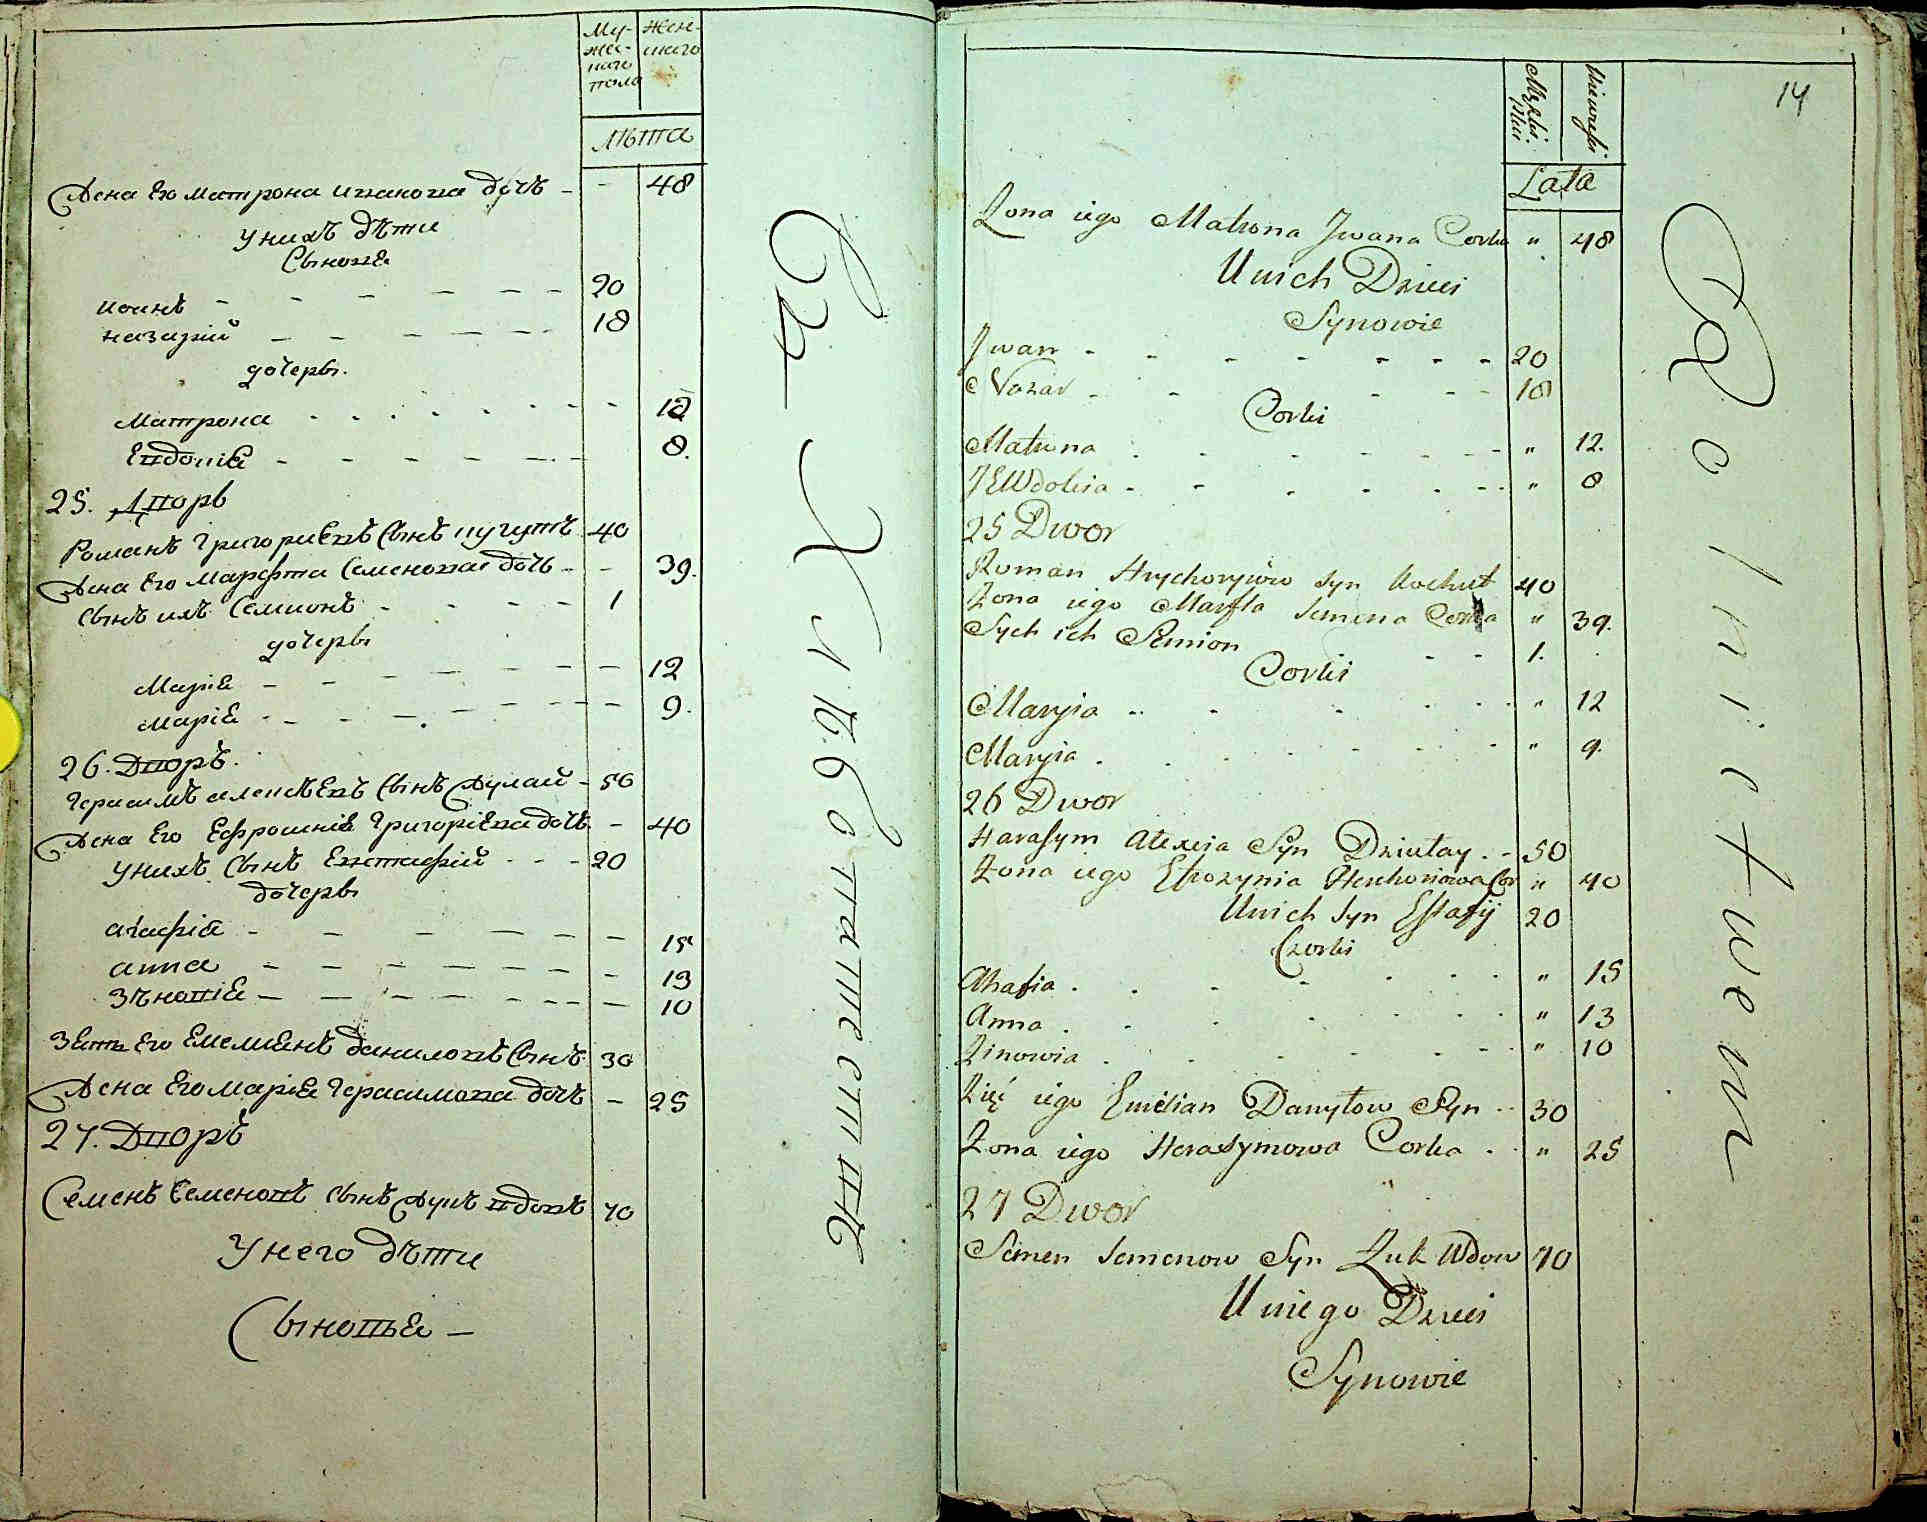 Му-
жес-
каго
пола
Жен-
скаго
лѣта
Жена Его Матрона Иванова дочъ - - 48
У нихъ дѣти
Сыновя
Иоанъ - - - - - - 20
Назарий - - - - - - 18
дочеры.
Матрона - - - - - - 12
Евдокиа - - - - - - 8.
25. Дворъ
Романъ Григориевъ Сынъ 40
Жена Его Марфта Семенова дочъ - - 39.
Сынъ ихъ Семионъ - - - - 1
дочеры
Мариа - - - - - - 12
Мариа - - - - - - 9.
26. Дворъ.
Герасимъ Алексѣевъ Сынъ Жулай - 50
Жена Его Ефросиниа Григориева дочъ - 40
У нихъ Сынъ Евстафий - - - 20
дочеры
агафиа - - - - - - 15
анна - - - - - - 13
Зѣновиа - - - - - - 10
Зеть Его Емелианъ Даниловъ Сынъ 30
Жена Его Мариа Герасимова дочъ - 25
27. Дворъ
Семенъ Семеновъ Сынъ Жукъ вдовъ 70
У него дѣти
Сыновьа -
Хлѣбопашествѣ
14
Męzki.
Płci
Niewieski
Lata
Zona iego Matrona Jwana Corka " 48
U nich Dzieci
Synowie
Jwan - - - - - - 20
Nazar - - - - - - 18
Corki
Matrona - - - - - - " 12.
JEWdokia - - - - - - " 8
25 Dwor
Roman Hrychorijów Syn 40
Zona iego Marfta Semena Corka " 39.
Sych ich Semion - - 1.
Corki
Maryia - - - - - " 12
Maryia - - - - - " 9.
26 Dwor
Harasym Alexeia Syn Dziułay. - 50
Zona iego " 40
U nich Syn Estafij 20
Czorki
Ahafia - - - - - " 15
Anna - - - - - " 13
Zinowia - - - - - " 10
Zięć iego Emelian Danyłow Syn - 30
Zona iego Herasymowa Corka - " 25
27 Dwor
Semen Semenow Syn Żuk Wdow 70
U niego Dzieci
Synowie
Rolnictwem